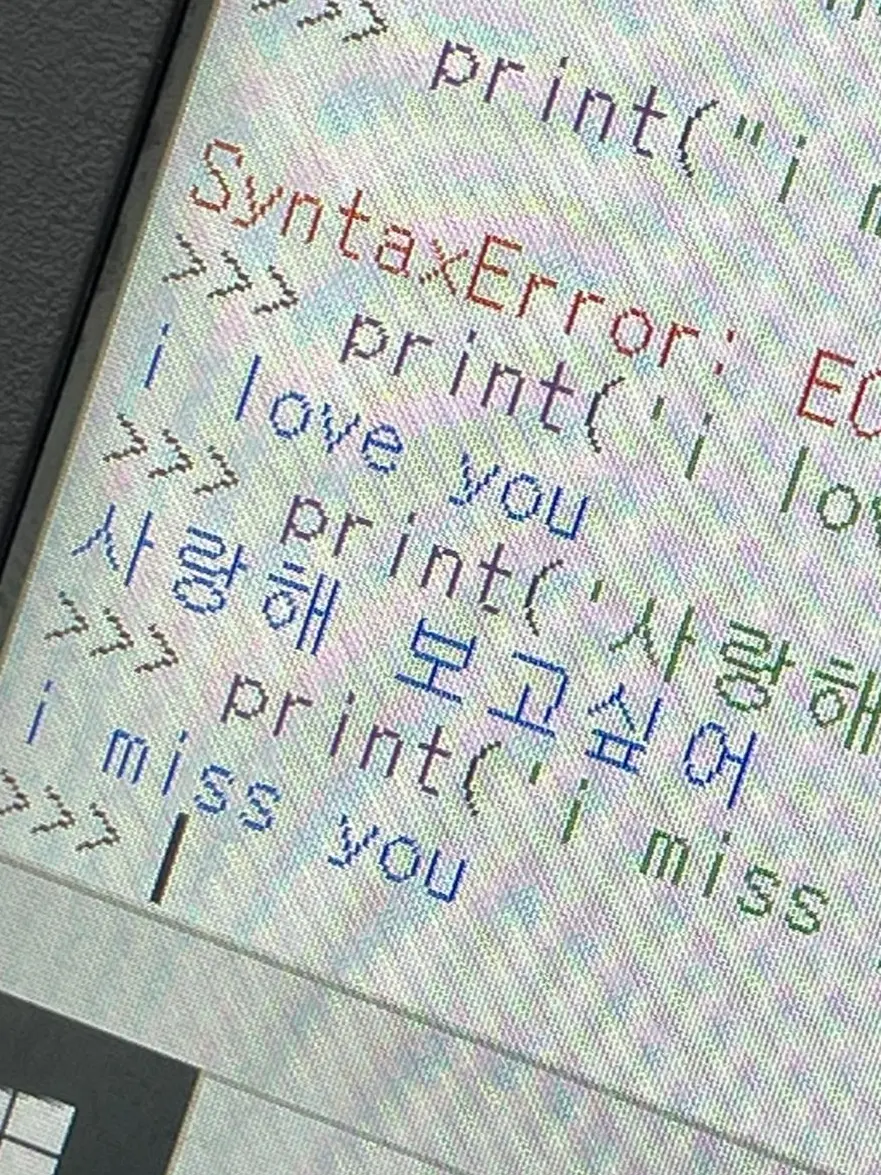 >>> print("i
SyntaxError:
>>> print('i
i love you
>>> print('사랑해
사랑해 보고싶어
>>> print('i miss
i miss you
>>>